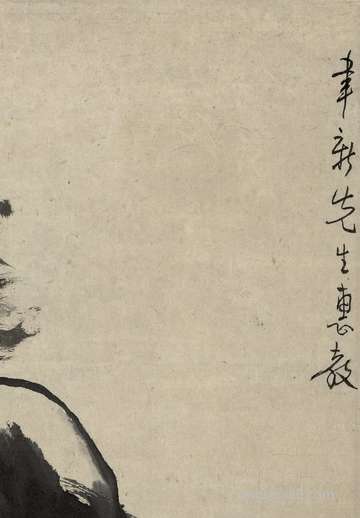 聿新先生惠教